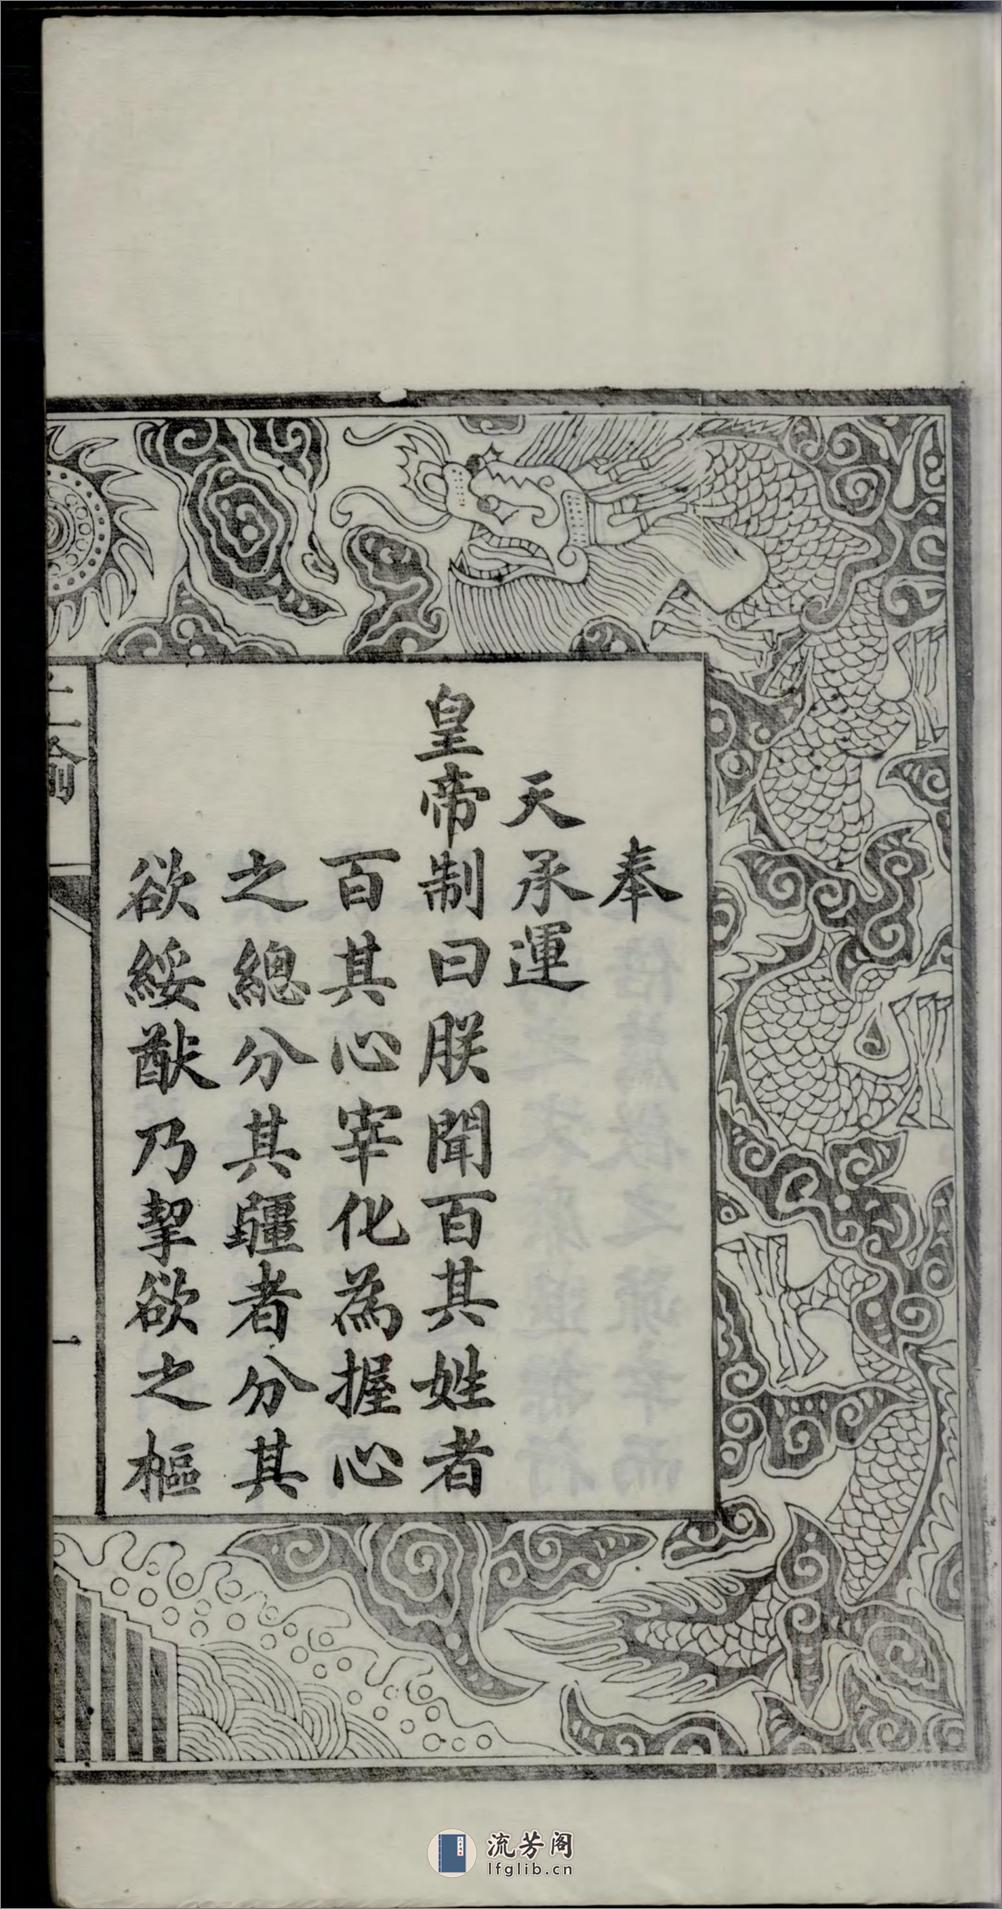 奉
天承運
皇帝制曰朕聞百其姓者
百其心宰化為握心
之總分其疆者分其
欲綏猷乃挈欲之樞
上諭
一
流芳阁
lfglib.cn